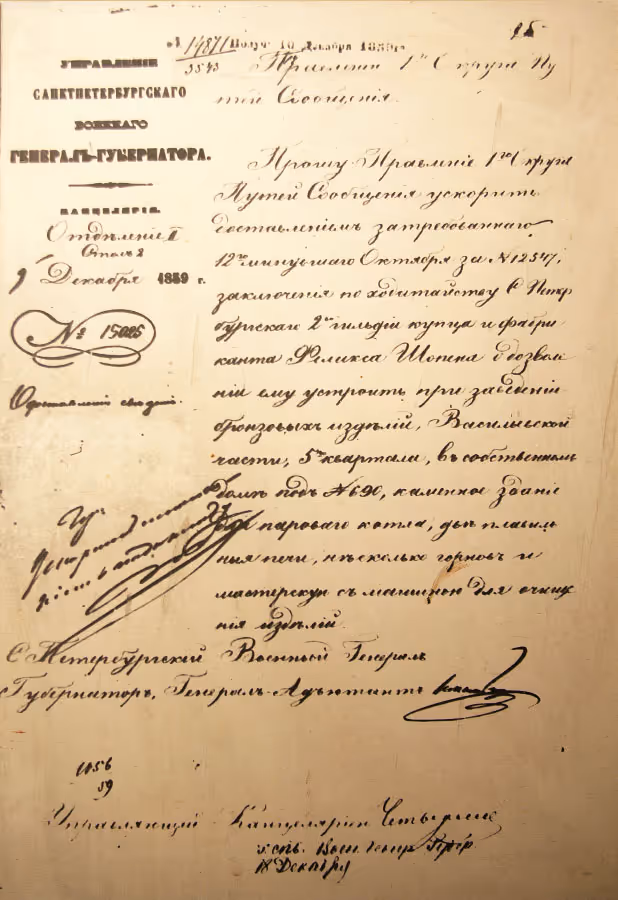 15
№ 14871 Получ. 10 Декабря 1859 г.
3543
УПРАВЛЕНІЕ
САНКТПЕТЕРБУРГСКАГО
ВОЕННАГО
ГЕНЕРАЛЪ-ГУБЕРНАТОРА.
КАНЦЕЛЯРІЯ.
Отдѣленіе II
Столъ 2
9 Декабря 1859 г.
№ 15025
О доставленіи свѣденія.
Правленію 1го Округа Пу
тей Сообщенія.
Прошу Правленіе 1го Округа
Путей Сообщенія ускорить
доставленіемъ затребованнаго
12го минувшаго Октября за № 12547,
заключенія по ходатайству С. Петер
бургскаго 2й гильдіи купца и фабри
канта Феликса Шопена о дозволе
ніи ему устроить при заведеніи
бронзовыхъ издѣлій, Васильевской
части, 5го квартала, въ собственномъ
домѣ подъ № 690, каменное зданіе
для пароваго котла, двѣ плавиль
ныя печи, нѣсколько горновъ и
мастерскую съ машиною для
издѣлій.
С. Петербургскій Военный Генералъ
Губернаторъ, Генералъ-Адъютантъ
59
Управляющій Канцеляріею
18 Декабря